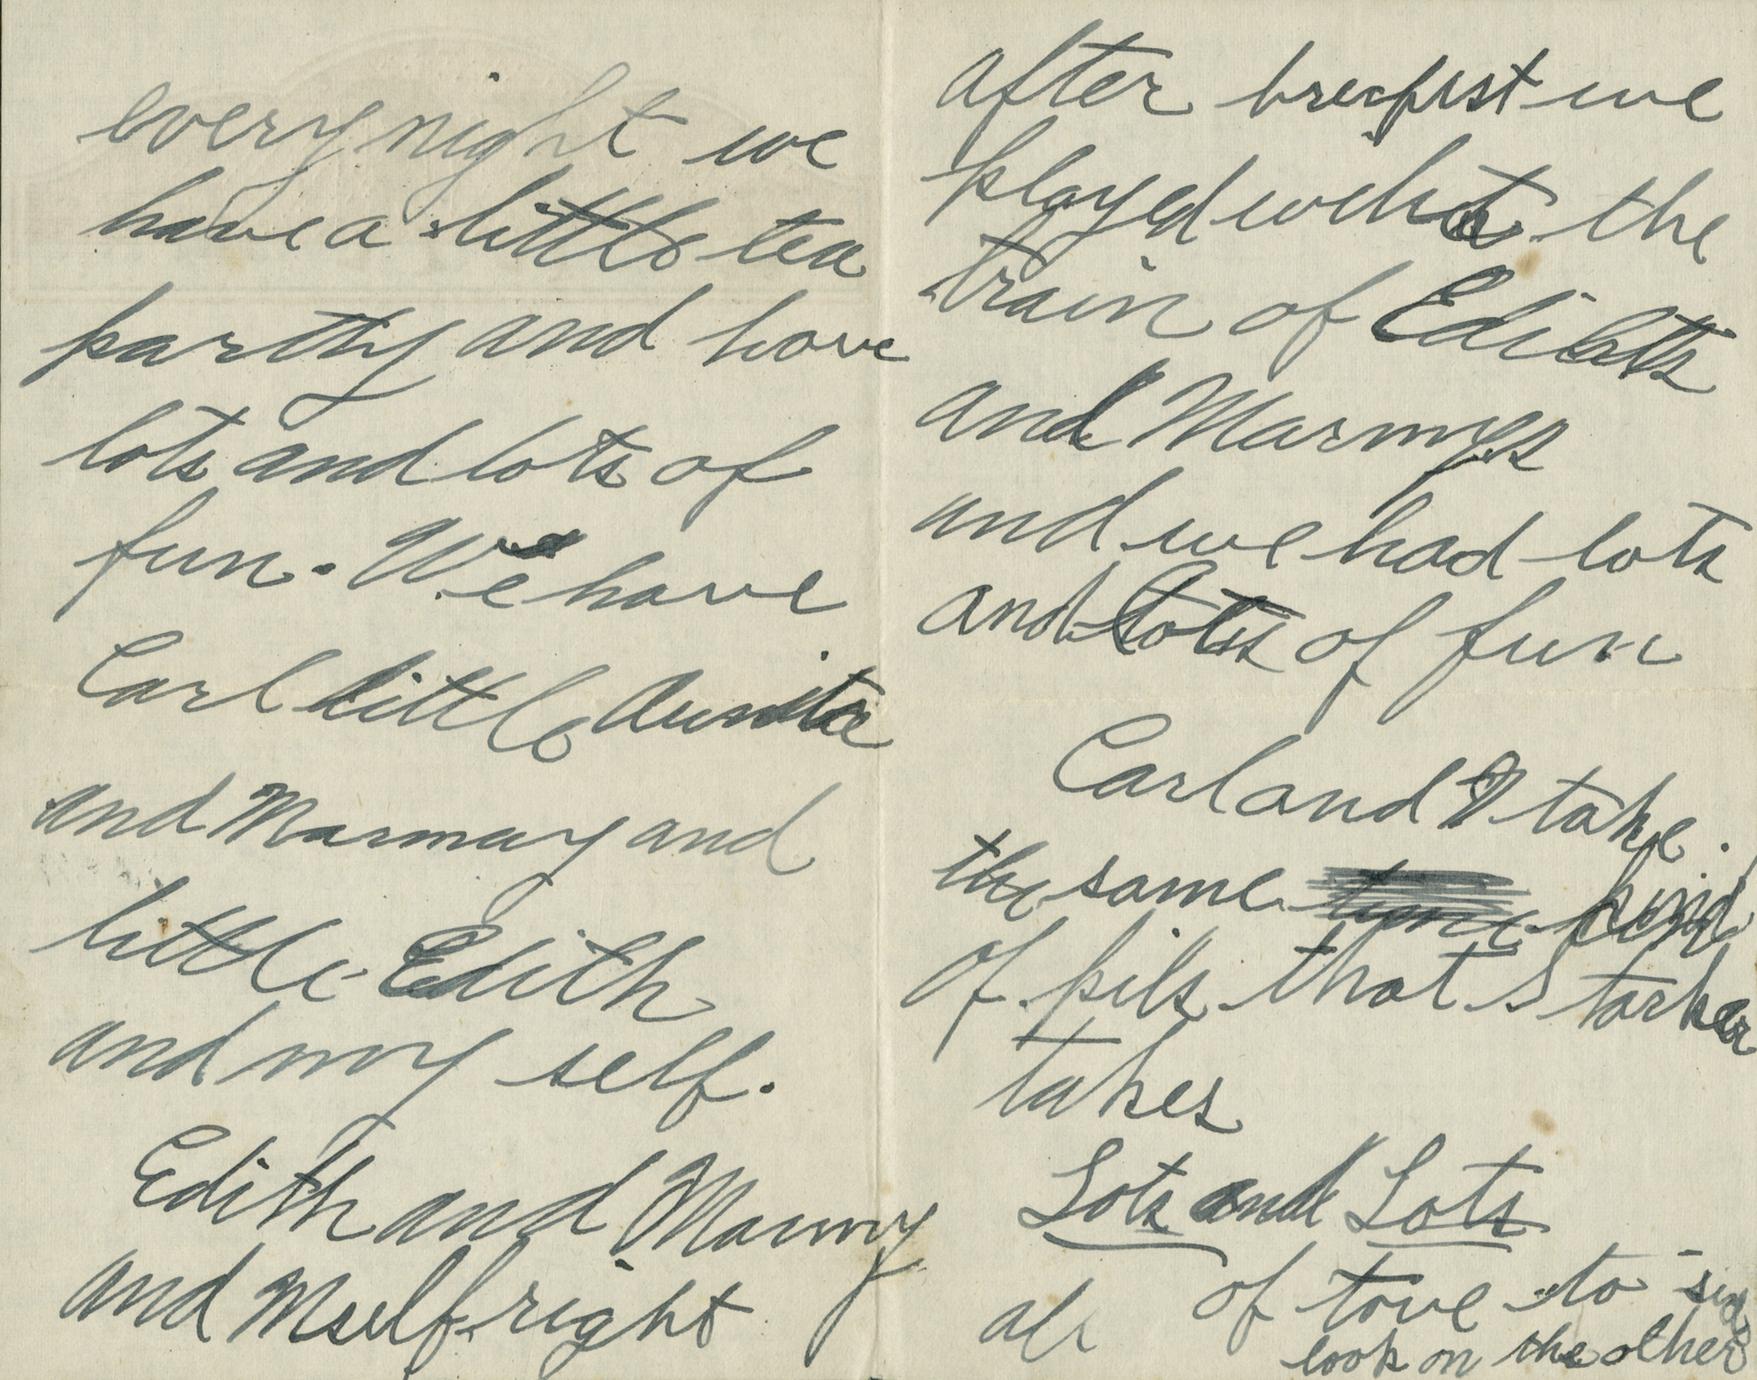 every night we
have a little tea
partty and have
lots and lots of
fun. We have
Carl little Auntie
and Marmay and
little Edith
and my self.
Edith and Marmy
and Mself right
after brecfist we
played whith the
train of Ediths
and Marmys
and we had lots
and lots of fun
Carl and I take
the same kind
of pils that Starker
takes
Lots and Lots
of love to
all
look on the other
side